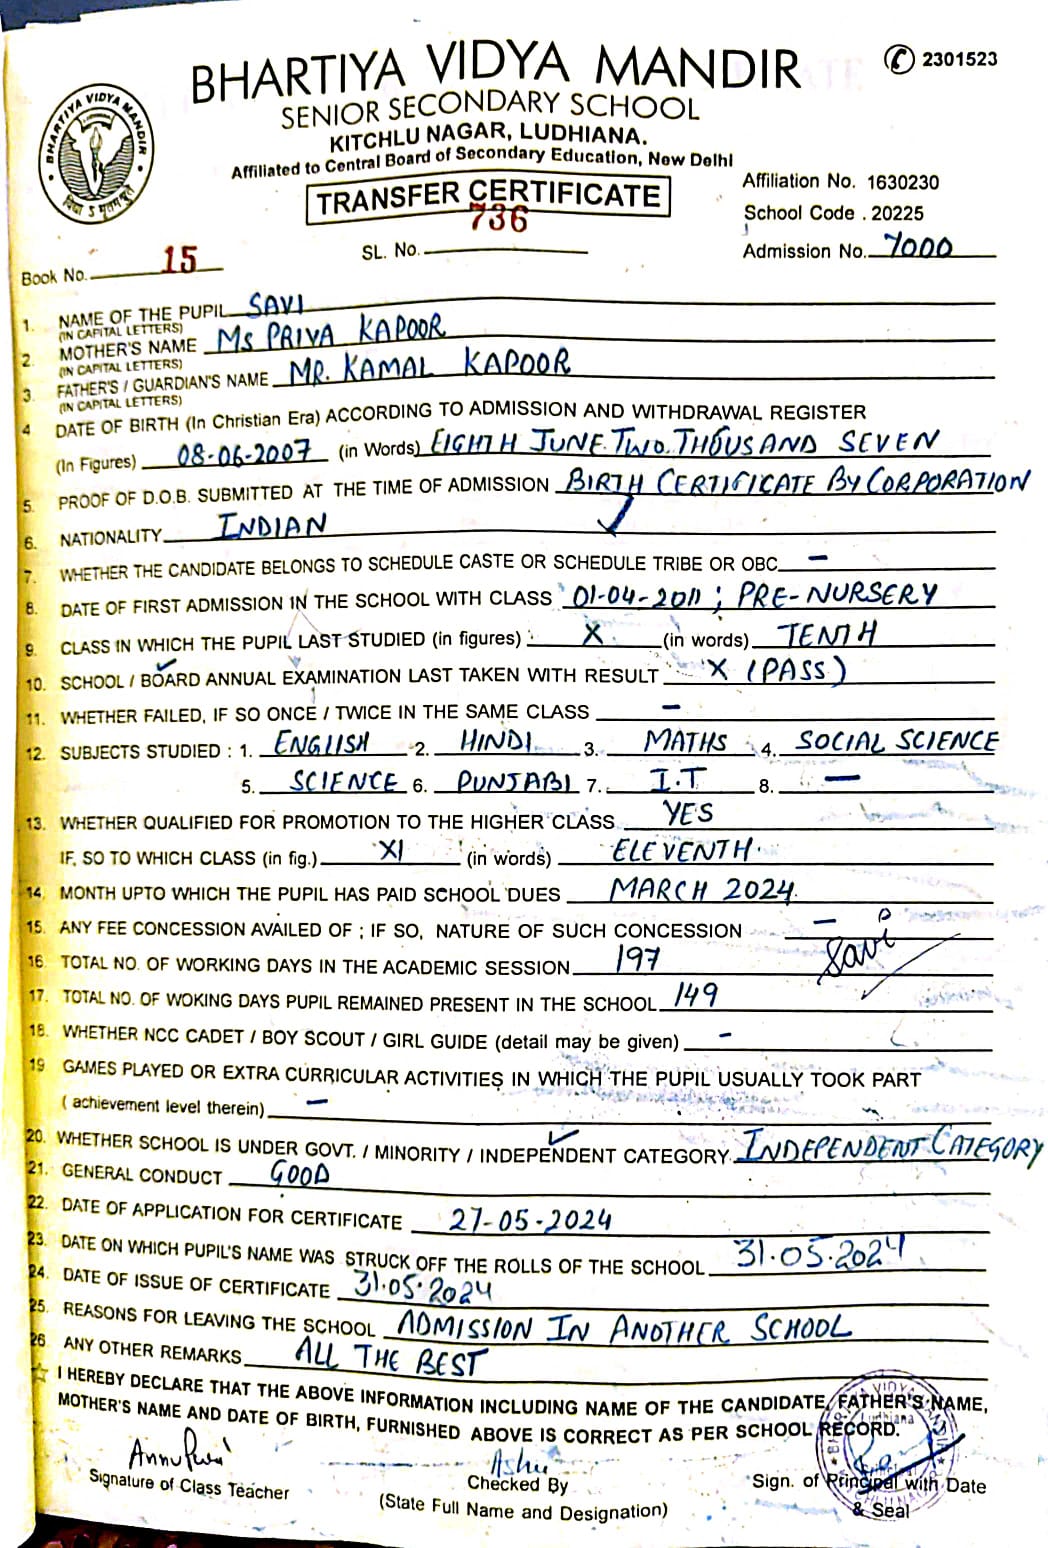 BHARTIYA VIDYA MANDIR
✆ 2301523
SENIOR SECONDARY SCHOOL
KITCHLU NAGAR, LUDHIANA.
Affiliated to Central Board of Secondary Education, New Delhi
BHARTIYA VIDYA MANDIR
TRANSFER CERTIFICATE
Affiliation No. 1630230
School Code . 20225
Admission No. 7000
SL. No. 736
Book No. 15
1. NAME OF THE PUPIL SAVI
(IN CAPITAL LETTERS)
2. MOTHER'S NAME Ms PRIYA KAPOOR
(IN CAPITAL LETTERS)
3. FATHER'S / GUARDIAN'S NAME MR. KAMAL KAPOOR
(IN CAPITAL LETTERS)
4 DATE OF BIRTH (In Christian Era) ACCORDING TO ADMISSION AND WITHDRAWAL REGISTER
(In Figures) 08-06-2007 (in Words) EIGHTH JUNE TWO THOUSAND SEVEN
5. PROOF OF D.O.B. SUBMITTED AT THE TIME OF ADMISSION BIRTH CERTIFICATE By CORPORATION
6. NATIONALITY INDIAN
7. WHETHER THE CANDIDATE BELONGS TO SCHEDULE CASTE OR SCHEDULE TRIBE OR OBC –
8. DATE OF FIRST ADMISSION IN THE SCHOOL WITH CLASS 01-04-2011 ; PRE-NURSERY
9. CLASS IN WHICH THE PUPIL LAST STUDIED (in figures) : X (in words) TENTH
10. SCHOOL / BOARD ANNUAL EXAMINATION LAST TAKEN WITH RESULT X (PASS)
11. WHETHER FAILED, IF SO ONCE / TWICE IN THE SAME CLASS –
12. SUBJECTS STUDIED : 1. ENGLISH 2. HINDI 3. MATHS 4. SOCIAL SCIENCE
5. SCIENCE 6. PUNJABI 7. I.T 8. –
13. WHETHER QUALIFIED FOR PROMOTION TO THE HIGHER CLASS YES
IF, SO TO WHICH CLASS (in fig.) XI (in words) ELEVENTH.
14. MONTH UPTO WHICH THE PUPIL HAS PAID SCHOOL DUES MARCH 2024.
15. ANY FEE CONCESSION AVAILED OF ; IF SO, NATURE OF SUCH CONCESSION –
Savi
16. TOTAL NO. OF WORKING DAYS IN THE ACADEMIC SESSION 197
17. TOTAL NO. OF WOKING DAYS PUPIL REMAINED PRESENT IN THE SCHOOL 149
18. WHETHER NCC CADET / BOY SCOUT / GIRL GUIDE (detail may be given) –
19 GAMES PLAYED OR EXTRA CURRICULAR ACTIVITIES IN WHICH THE PUPIL USUALLY TOOK PART
( achievement level therein) –
20. WHETHER SCHOOL IS UNDER GOVT. / MINORITY / INDEPENDENT CATEGORY. INDEPENDENT CATEGORY
21. GENERAL CONDUCT GOOD
22. DATE OF APPLICATION FOR CERTIFICATE 27-05-2024
23. DATE ON WHICH PUPIL'S NAME WAS STRUCK OFF THE ROLLS OF THE SCHOOL 31.05.2024
24. DATE OF ISSUE OF CERTIFICATE 31.05.2024
25. REASONS FOR LEAVING THE SCHOOL ADMISSION IN ANOTHER SCHOOL
26 ANY OTHER REMARKS ALL THE BEST
☆ I HEREBY DECLARE THAT THE ABOVE INFORMATION INCLUDING NAME OF THE CANDIDATE, FATHER'S NAME,
MOTHER'S NAME AND DATE OF BIRTH, FURNISHED ABOVE IS CORRECT AS PER SCHOOL RECORD.
Ludhiana
Signature of Class Teacher
Checked By
(State Full Name and Designation)
Sign. of Principal with Date
& Seal